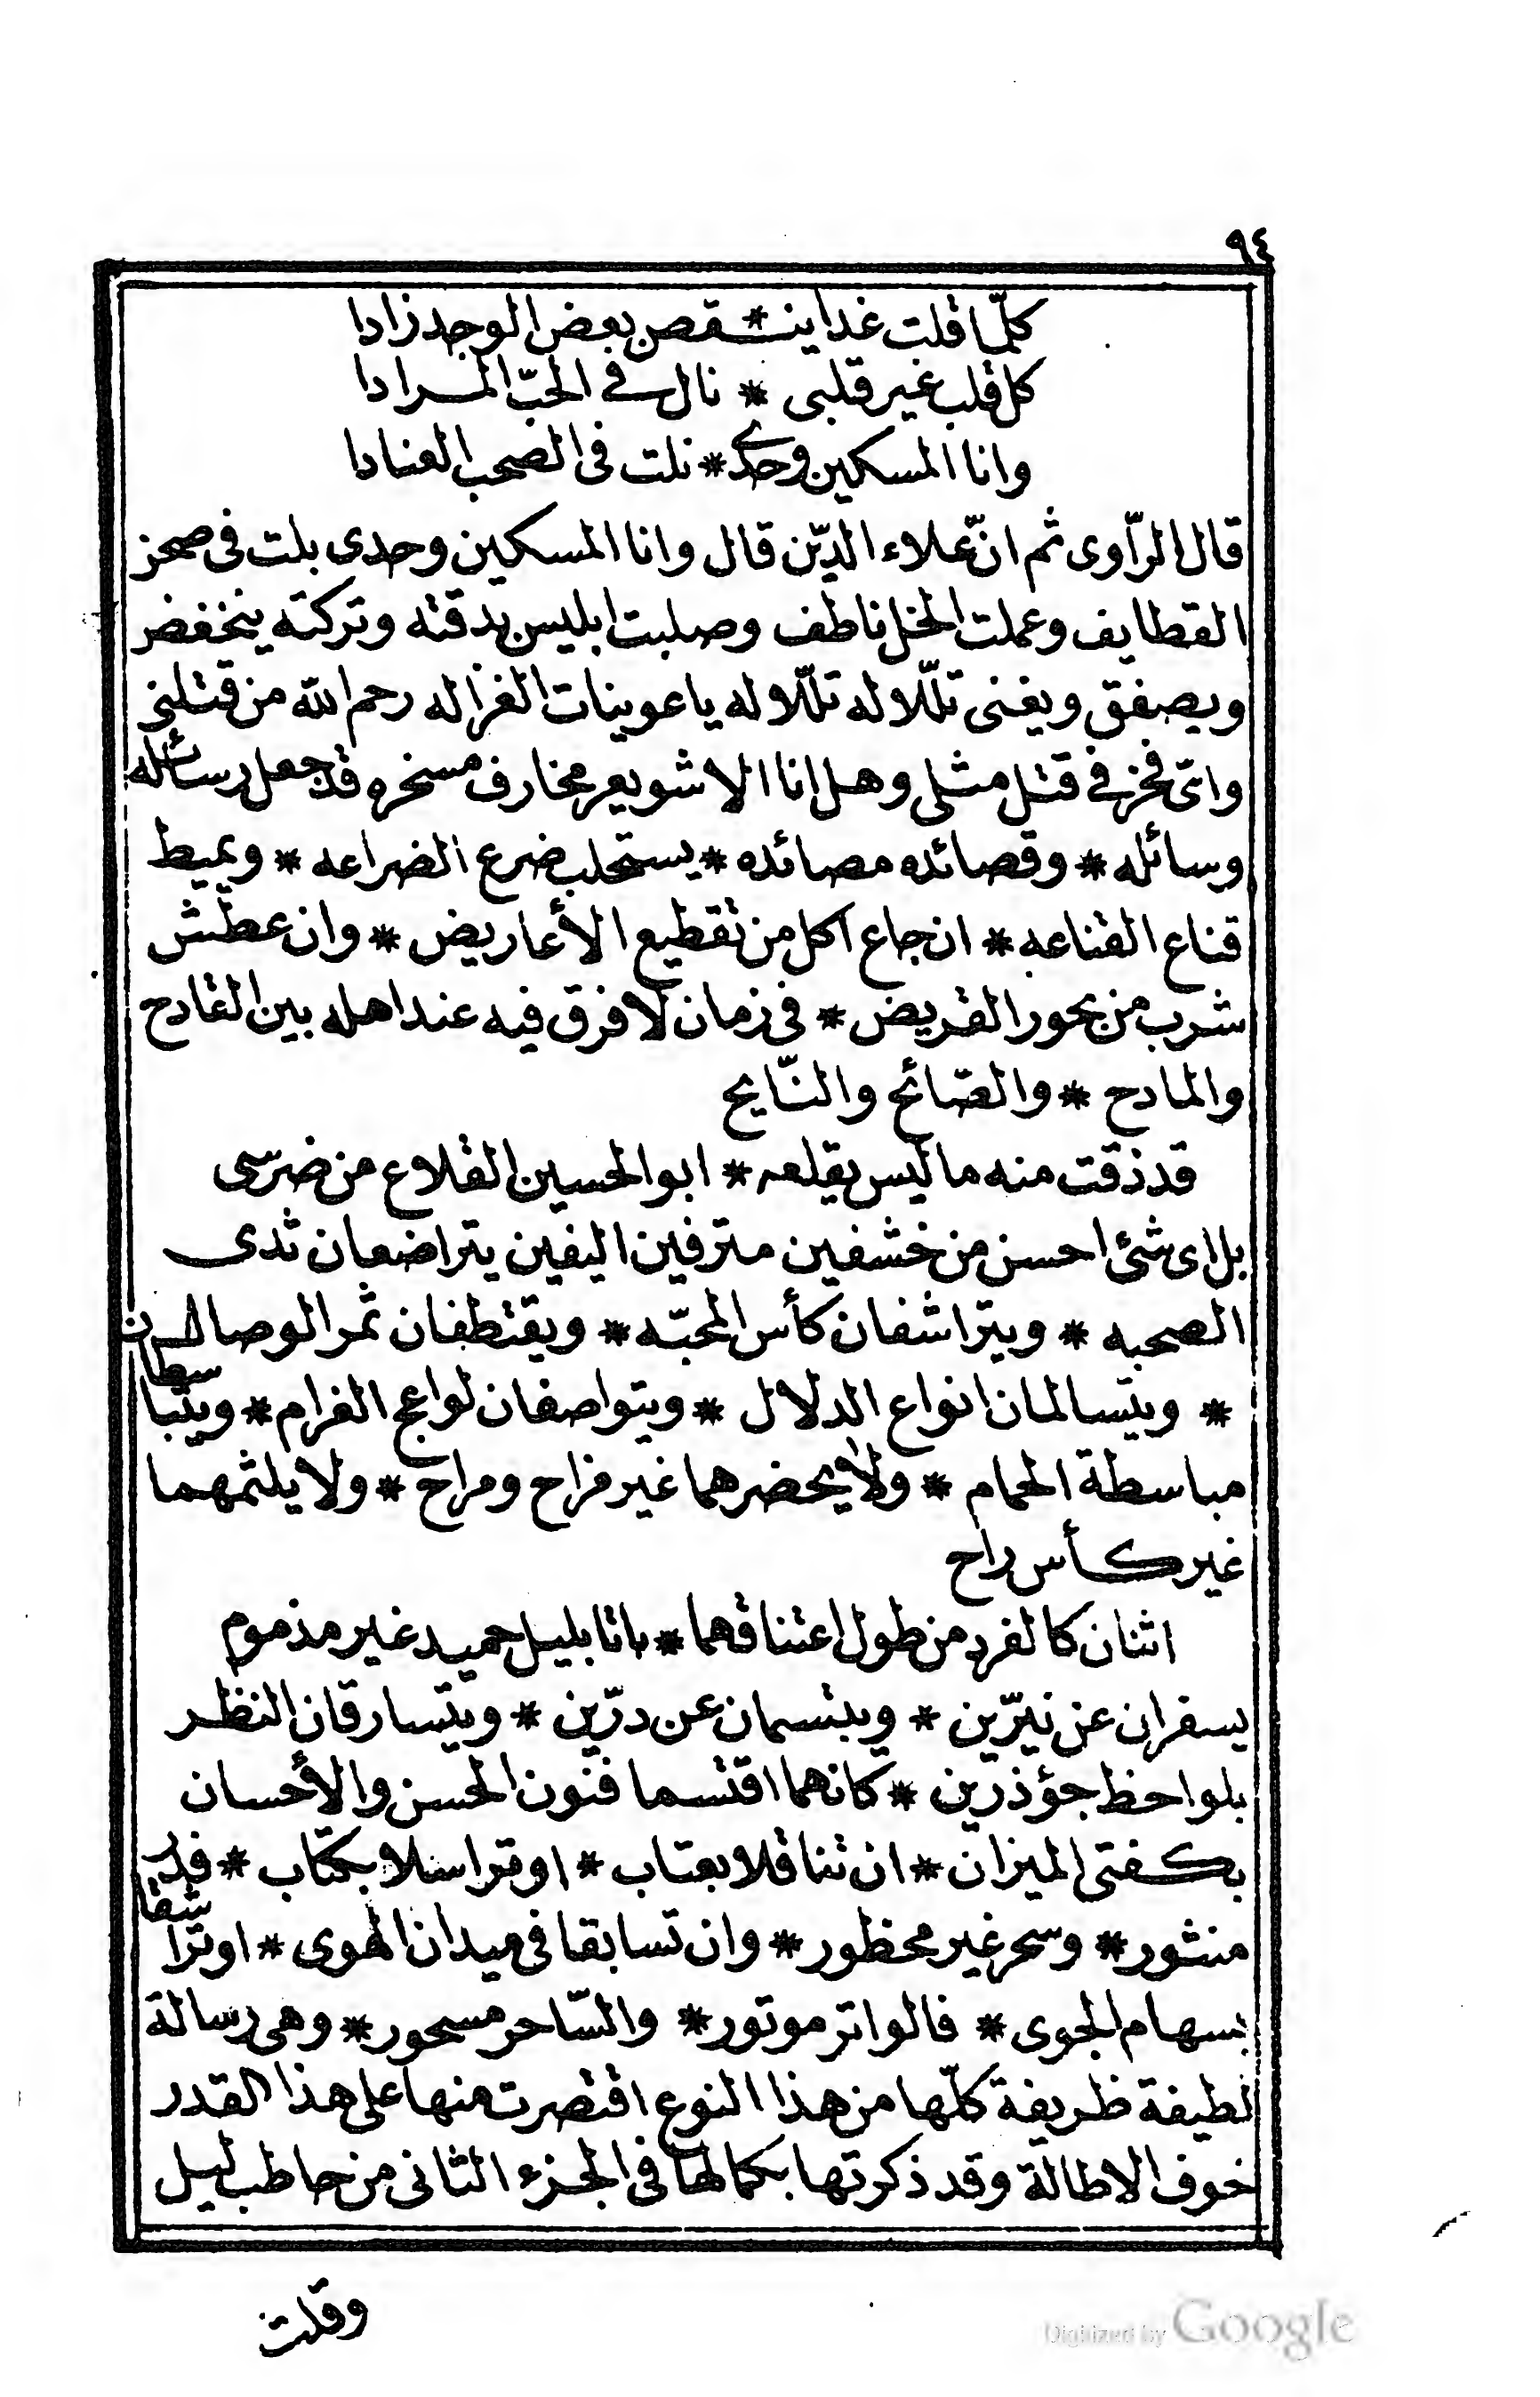 ٩٤
كلّما قلت غدا ينـ * ـقص بعض الوجد زادا
كل قلب غير قلبى * نال فى الحبّ المرادا
وانا المسكين وحدى * نلت فى الصحب العنادا
قال الرّاوى ثم انّ علاء الدّين قال وانا المسكين وحدى بلت فى صحن
القطايف وعملت الخل ناطف وصلبت ابليس بدقنه وتركته ينخفض
ويصفق ويغنى تللّلا له تللّلا له يا عوينات الغزاله رحم الله من قتلنى
واىّ فخر فى قتل مثلى وهل انا الا شويعر مخارف مسخره قد جعل رسائله
وسائله * وقصائده مصائده * يستحلب ضرع الضراعه * ويميط
قناع القناعه * ان جاع اكل من تقطيع الأعاريض * وان عطش
شرب من بحور القريض * فى زمان لا فرق فيه عند اهله بين القادح
والمادح * والصّائح والنّايح
قد ذقت منه ما ليس يقلعه * ابو الحسين القلاع من ضرسى
بل اى شئ احسن من خشفين مترفين اليفين يتراضعان ثدى
الصحبه * ويتراشفان كأس المحبّه * ويقتطفان ثمر الوصال
* ويتسالمان انواع الدلال * ويتواصفان لواعج الغرام * ويتباسطان
مباسطة الحمام * ولا يحضرهما غير مزاح ومراح * ولا يلثمهما
غير كأس راح
اثنان كالفرد من طول اعتناقهما * باتا بليل حميد غير مذموم
يسفران عن نيّرين * ويبتسمان عن درّين * ويتسارقان النظر
بلواحظ جؤذرين * كانهما اقتسما فنون الحسن والأحسان
بكفتى الميزان * ان تناقلا بعتاب * او تراسلا بكتاب * فدر
منثور * وسحر غير محظور * وان تسابقا فى ميدان الهوى * او تراشقا
بسهام الجوى * فالواتر موتور * والسّاحر مسحور * وهى رسالة
لطيفة ظريفة كلّها من هذا النوع اقتصرت منها على هذا القدر
خوف الاطالة وقد ذكرتها بكمالها فى الجزء الثانى من حاطب ليل
وقلت
Digitized by Google